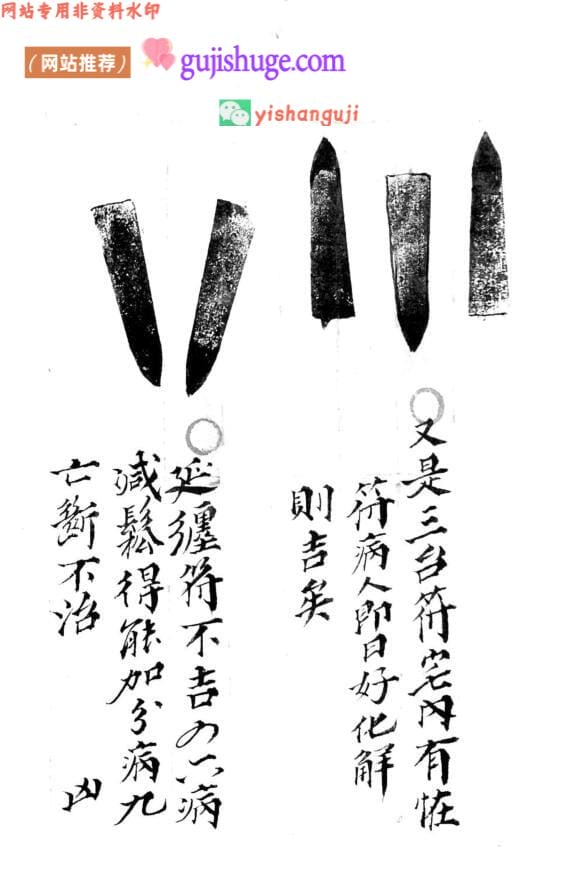 网站专用非资料水印
（网站推荐） gujishuge.com
yishanguji
又是三台符宅内有怪
符病人即日好化解
則吉矣
延纏符不吉 病
減鬆得能加分病九
亡斷不治 凶